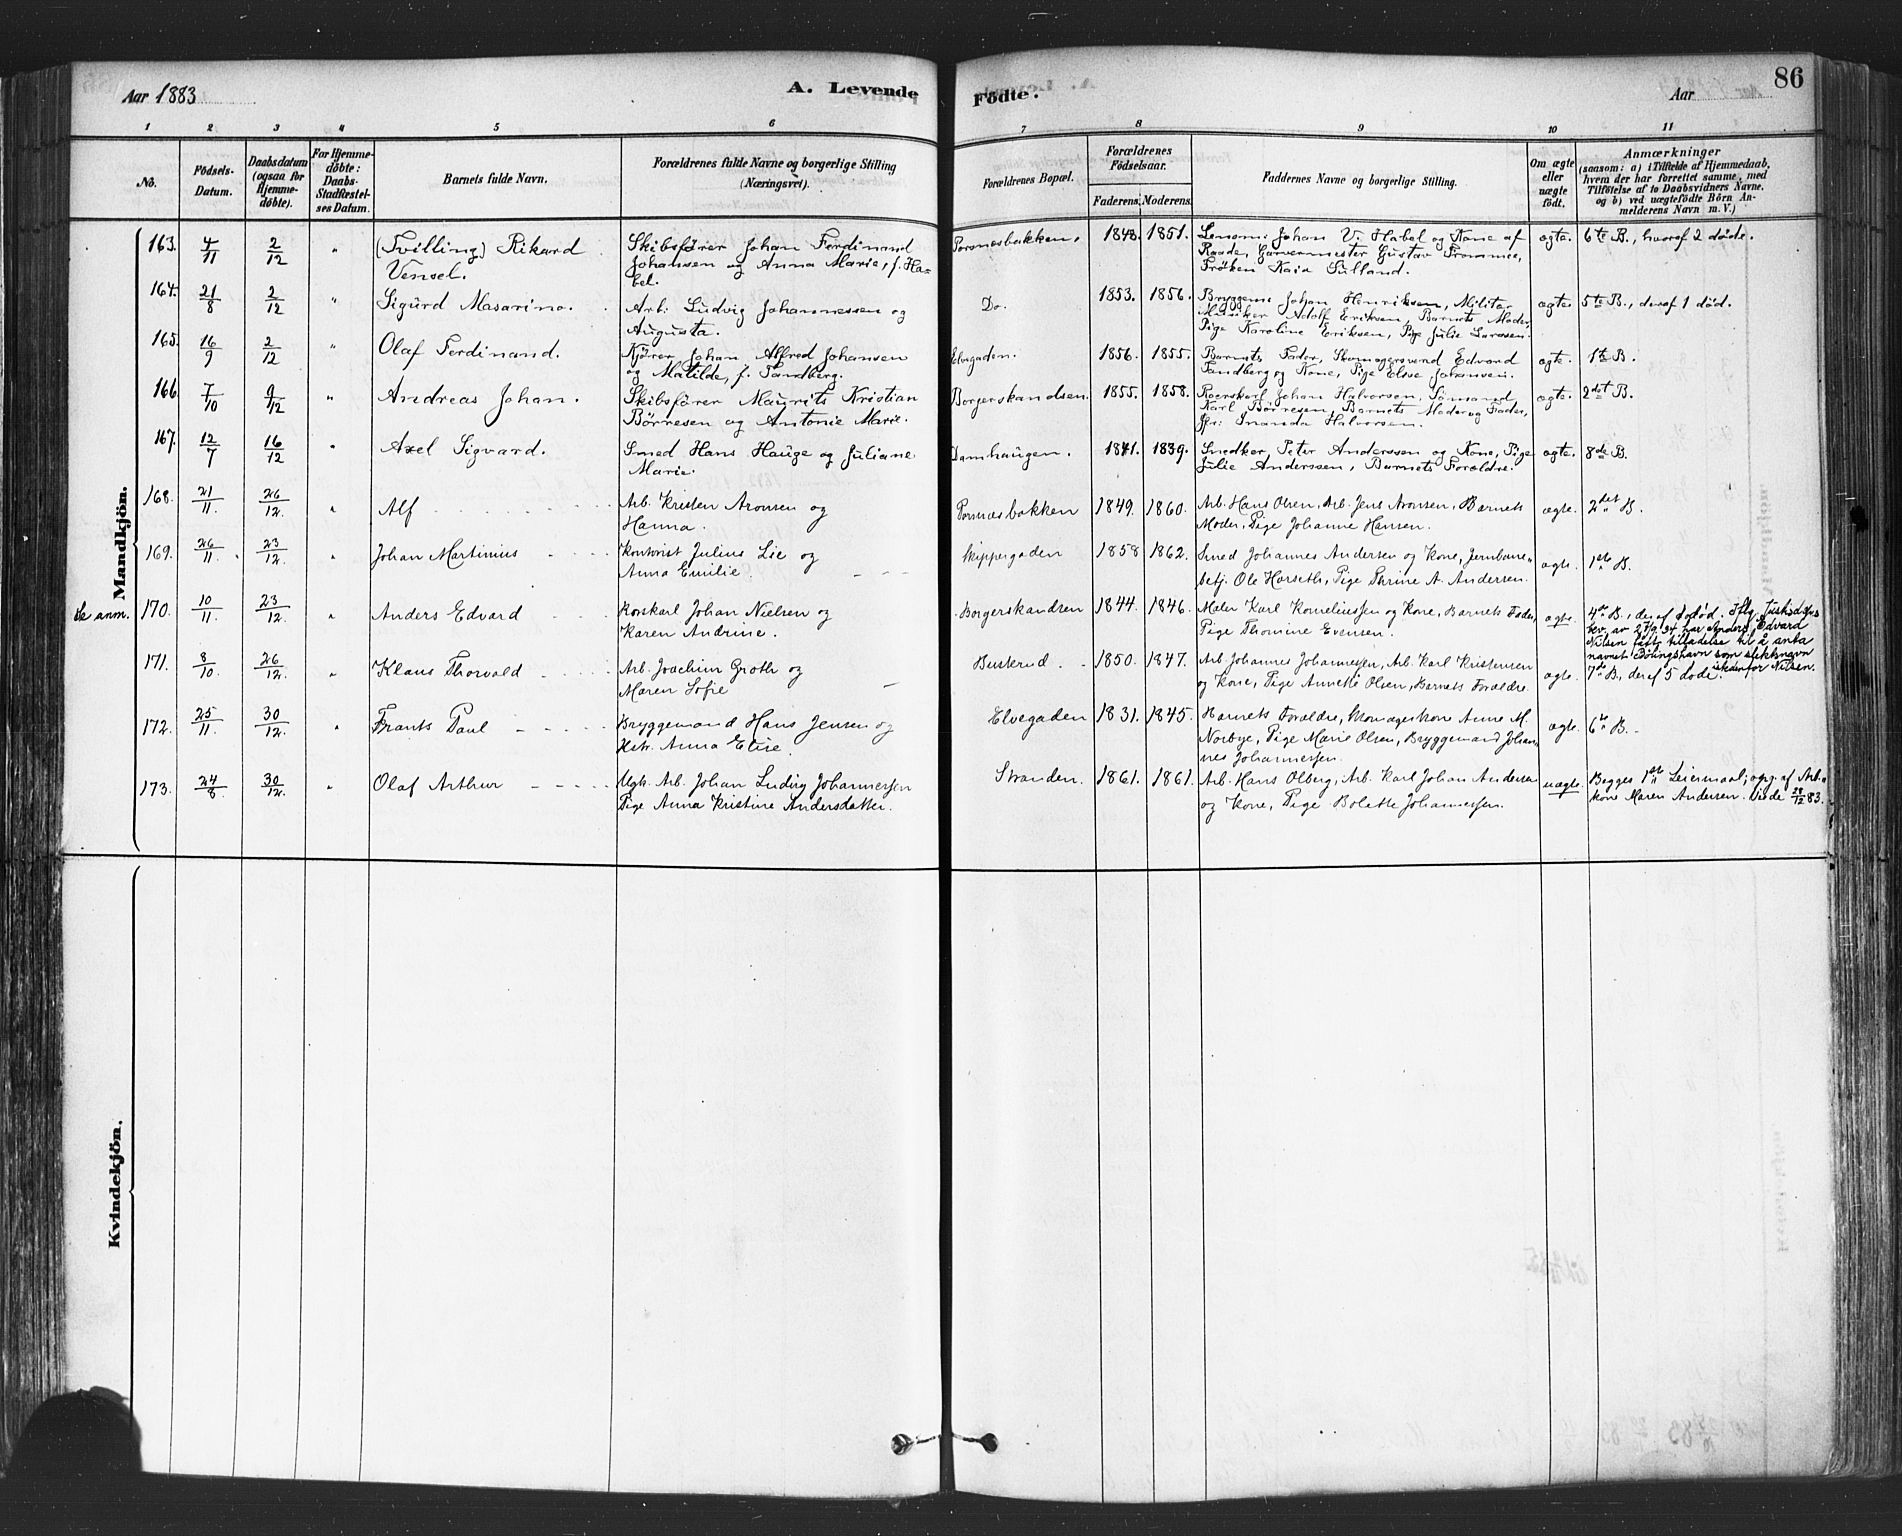 Aar 1883
A. Levende Födte.
Aar
86
1 2 3 4 5 6 7 8 9 10 11
No.
Födsels-Datum.
Daabsdatum (ogsaa for Hjemme-döbte).
For Hjemme-döbte: Daabs-Stadfæstel-ses Datum.
Barnets fulde Navn.
Forældrenes fulde Navne og borgerlige Stilling
(Næringsvei).
Forældrenes Bopæl.
Forældrenes Födselsaar.
Faderens. Moderens.
Faddernes Navne og borgerlige Stilling.
Om ægte eller uægte födt.
Anmærkninger
(saasom: a) i Tilfælde af Hjemmedaab,
hvem der har forrettet samme, med
Tilföielse af to Daabsvidners Navne,
og b) ved uægtefödte Börn An-
melderens Navn m. V.)
Mandkjön.
163. 4/11 2/12 " (Tvilling) Rikard
Vensel.
Skibsfører Johan Ferdinand
Johansen og Anna Marie, f. Ha-
bel.
Pornesbakken. 1848. 1851.
Lensm: Johan V. Habel og Kone af
Raade, Garvermester Gustav Frommee,
Frøken Kaia Sulland.
ægte. 6te B., hvoraf 2 døde.
164. 21/8 2/12 " Sigurd Masarino.
Arb: Ludvig Johannessen og
Augusta.
Do. 1853. 1856.
Bryggem: Johan Henriksen, Militær
Musiker Adolf Eriksen, Barnets Moder,
Pige Karoline Eriksen, Pige Julie Larssen.
ægte. 5te B., deraf 1 død.
165. 16/9 2/12 " Olaf Ferdinand.
Kjører Johan Alfred Johansen
og Matilde, f. Sandberg.
Elvegaden. 1856. 1855.
Barnets Fader, Skomagersvend Edvard
Sandberg og Kone, Pige Elise Johansen.
ægte. 1te B.
166. 7/10 9/12 " Andreas Johan.
Skibsfører Maurits Kristian
Börresen og Antonie Marie.
Borgerskandsen. 1855. 1858.
Roerskarl Johan Halvorsen, Sømand
Karl Börresen, Barnets Moder og Fader,
Inanda Halvorsen.
ægte. 2det B.
167. 12/7 16/12 Axel Sigvard.
Smed Hans Hauge og Juliane
Marie.
Damhaugen. 1841. 1839.
Snedker Peter Anderssen og Kone, Pige
Julie Anderssen, Barnets Forældre.
ægte. 8de B.
168. 21/11. 26/12. " Alf
Arb. Kristen Aronsen og
Hanna.
Pornæsbakken 1849. 1860.
Arb. Hans Olsen, Arb. Jens Aronsen, Barnets
Moder, Pige Johanne Hansen.
ægte. 2det B.
169. 26/11. 23/12. Johan Martinius
Kontorist Julius Lie og
Anna Emilie.
Skippergaden 1858 1862.
Smed Johannes Andersen og Kone, Jernbane-
betj. Ole Harseth, Pige Thrine A. Andersen.
ægte. 1ste B.
Se anm. 170. 10/11. 23/12. " Anders Edvard
Johan Nielsen og
Karen Andrine.
Borgerskandsen 1844. 1846.
Maler Karl Korneliussen og Kone, Barnets Fader,
Pige Thomine Evensen.
ægte. 4de B., deraf 1 død. Iflg. Justisdeps
bev. av 27/9 34 har Anders Edvard
Nilsen fått tilladelse til å anta
navnet Bölingshavn som slektsnavn
istedenfor Nilsen.
171. 8/10. 26/12. " Klaus Thorvald
Arb. Joachim Groth og
Maren Sofie
Busterud. 1850. 1847.
Arb. Johannes Johannessen, Arb. Karl Kristensen
og Kone, Pige Annette Olsen, Barnets Forældre.
ægte. 7de B., deraf 5 døde.
172. 25/11. 30/12. " Frants Paul
Bryggemand Hans Jensen og
Hstr. Anna Elise.
Elvegaden 1831. 1845.
Barnets Forældre, Skomagerkone Anne M.
Norbye, Pige Marie Olsen, Bryggemand Johan-
nes Johannessen.
ægte. 6te B.
173. 24/8. 30/12. " Olaf Arthur
Ugk. Arb. Johan Ludvig Johannessen
Pige Anna Kristine Andersdatter.
Stranden. 1861. 1861.
Arb. Hans Olberg, Arb. Karl Johan Andersen
og Kone, Pige Bolette Johannessen.
uægte. Begges 1ste Leiermaal; opg. af Arb.
kone Maren Andersen. 28/12 83.
Kvindekjön.